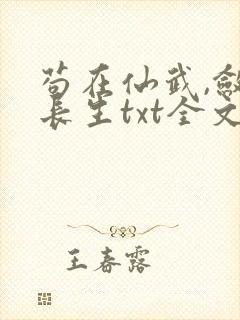 苟在仙武,敛
长生txt全文
王春露